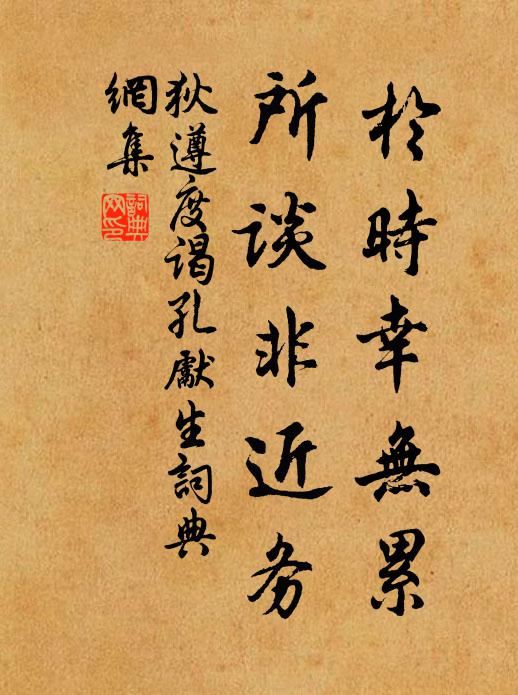 於時幸無累
所谈非近务
狄遵度謁孔獻生詞典
網集
詞典
网印